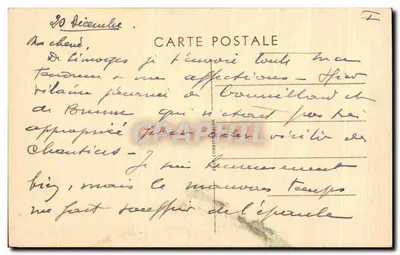 20 Décembre.
I
CARTE POSTALE
Ma chérie,
De Limoges je t'envoie toute ma
tendresse + mes affections - Hier
vilaine journée de brouillard et
de brume qui n'étant pas très
appropriée pour une visite de
chantiers - Je suis heureusement
bien, mais le mauvais temps
me fait souffrir de l'épaule